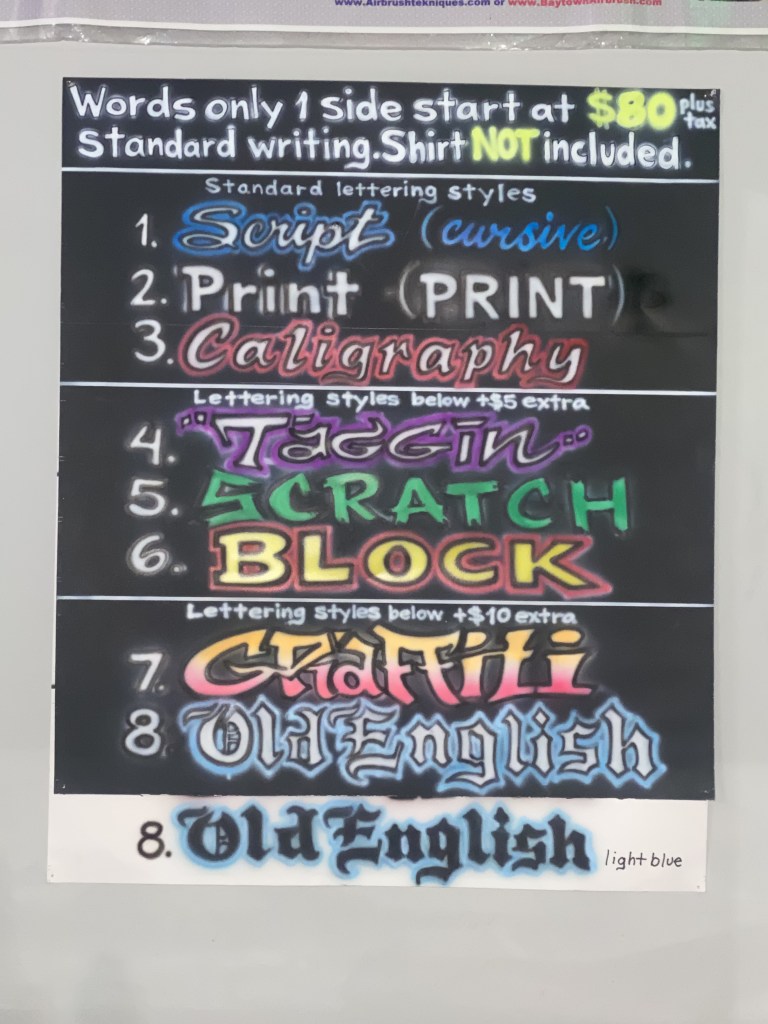 www.Airbrushtekniques.com or www.BaytownAirbrush.com
Words only 1 side start at $80 plus tax
Standard writing. Shirt NOT included.
Standard lettering styles
1. Script (cursive)
2. Print (PRINT)
3. Caligraphy
Lettering styles below +$5 extra
4. "Taggin"
5. SCRATCH
6. BLOCK
Lettering styles below +$10 extra
7. Graffiti
8. Old English
8. Old English light blue